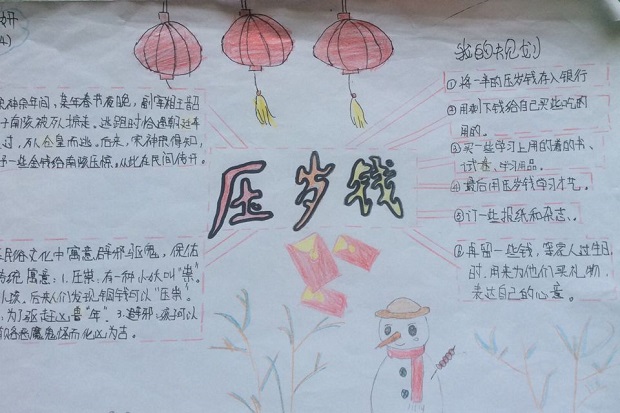 妍
4)
神宗年间,某年春节夜晚,副宰相王韶
子南陔被歹人掠走。逃跑时恰遇朝廷车
过,歹人仓皇而逃。后来,宋神宗得知,
一些金钱给南陔压惊。从此在民间传开。
压岁钱
民俗文化中寓意辟邪驱鬼,保佑
传统寓意:1.压祟,有一种小妖叫"祟"。
小孩,后来人们发现铜钱可以"压祟"。
为了驱赶凶兽"年"。3.避邪:孩子可以
妖魔鬼怪而化凶为吉
我的计划
①将一半的压岁钱存入银行
②用剩下钱给自己买些吃的
用的。
③买一些学习上用的看的书、
试卷、学习用品。
④最后用压岁钱学习才艺。
⑤订一些报纸和杂志。
⑥再留一些钱,等家人过生日
时,用来为他们买礼物,
表达自己的心意。